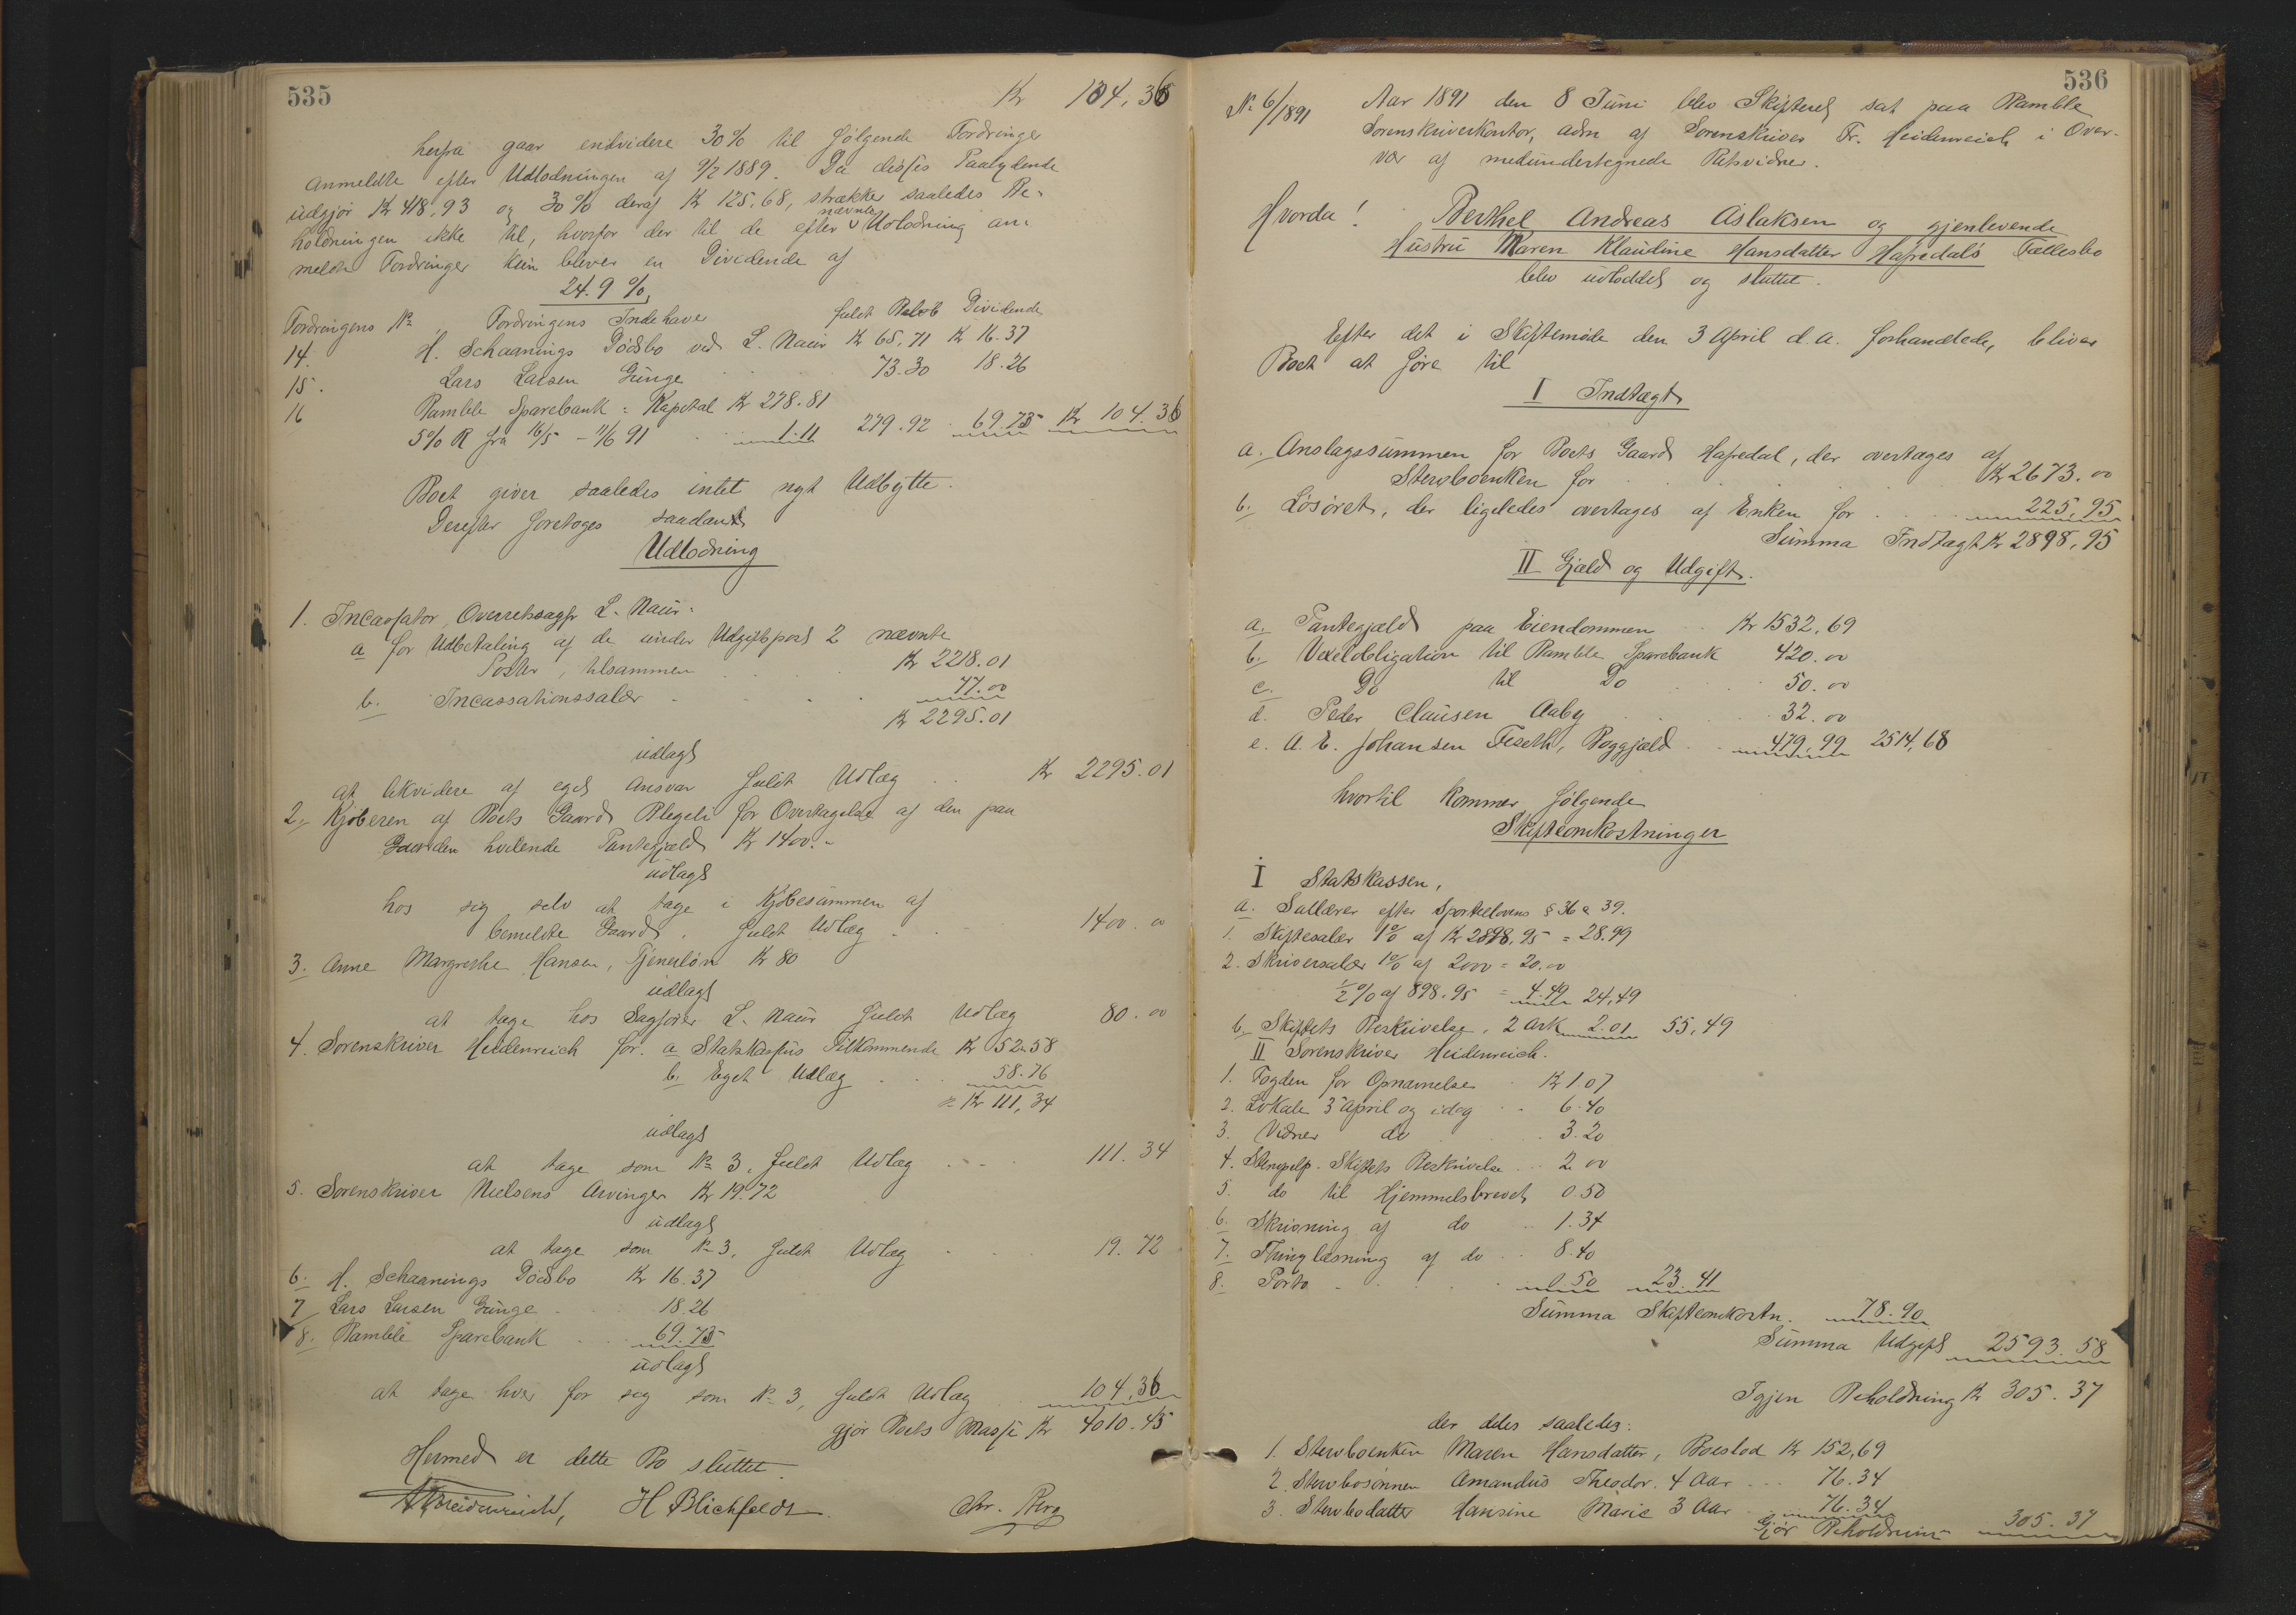 535
Kr 104,36
herfra gaar endvidere 30% til følgende Fordringer
anmeldte efter Udlodningen af 9/7 1889. Da disses Paalydende
udgjør Kr 418,93 og 30% deraf Kr 125,68, strækker saaledes Be-
holdningen ikke til, hvorfor der til de efter nævnte Udlodning an-
meldte Fordringer kun bliver en Dividende af
24.9 %,
Fordringens No Fordringens Indehaver fuldt Beløb Dividende
14. H. Schaanings Dødsbo ved L. Naur Kr 65,71 Kr 16.37
15. Lars Larsen Grunge 73.30 18.26
16 Bamble Sparebank: Kapital Kr 278.81
5% R fra 16/5 - 11/6 91 1.11 279.92 69.73 Kr 104.36
Boet giver saaledes intet nyt Udbytte.
Derefter foretoges saadan
Udlodning
1. Incassator, Overretssagfr L. Naur:
a for Udbetaling af de under Udgiftspost 2 nævnte
Poster, tilsammen Kr 2218.01
b. Incassationssalær 77.00
Kr 2295.01
udlagt
at likvidere af eget Ansvar fuldt Udlæg Kr 2295.01
2. Kjøberen af Boets Gaard Blegeli for Overtagelse af den paa
Gaarden hvilende Pantegjæld Kr 1400.-
udlagt
hos sig selv at tage i Kjøbesummen af
bemeldte Gaard, fuldt Udlæg 1400.00
3. Anne Margrethe Hansen, Tjenerløn Kr 80
udlagt
at tage hos Sagfører L. Naur fuldt Udlæg 80.00
4. Sorenskriver Heidenreich for. a Statskassens Tilkommende Kr 52.58
b. Eget Udlæg 58.76
= Kr 111,34
udlagt
at tage som No 3, fuldt Udlæg 111.34
5. Sorenskriver Nielsens Arvinger Kr 19.72
udlagt
at tage som No 3, fuldt Udlæg 19.72
6. H. Schaanings Dødsbo Kr 16.37
7 Lars Larsen Grunge 18.26
8. Bamble Sparebank 69.73
udlagt
at tage hver for sig som No 3, fuldt Udlæg 104,36
gjør Boets Masse Kr 4010.43
Hermed er dette Bo sluttet.
Heidenreich, H Blichfeldt. Chr. Berg
536
No 6/1891 Aar 1891 den 8 Juni blev Skifteret sat paa Bamble
Sorenskriverkontor, adm af Sorenskriver Fr. Heidenreich i Over-
vær af medundertegnede Retsvidner.
Hvorda! Berthel Andreas Aslaksen og gjenlevende
Hustru Maren Klaudine Hansdatter Hafredals Fællesbo
blev udloddet og sluttet.
Efter det i Skiftemøde den 3 April d.A. forhandlede, bliver
Boet at føre til
I Indtægt
a. Anslagssummen for Boets Gaard Hafredal, der overtages af
Stervboenken for Kr 2673.00
b. Løsøret, der ligeledes overtages af Enken for 225,95
Summa Indtægt Kr 2898,95
II Gjæld og Udgift.
a. Pantegjæld paa Eiendommen Kr 1532,69
b. Vexelobligation til Bamble Sparebank 420.00
c. Do til Do 50.00
d. Peder Clausen Aaby 32.00
e. A. E. Johansen Feseth, Boggjæld 479,99 2514,68
hvortil kommer følgende
Skifteomkostninger
I Statskassen,
a. Sallærer efter Sportellovens § 36 & 39.
1. Skiftesalær 1% af Kr 2898,95 = 28.99
2. Skriversalær 1% af 2000 = 20.00
1/2 % af 898.95 = 4.49 24,49
b. Skiftets Beskrivelse, 2 Ark 2.01 55,49
II Sorenskriver Heidenreich.
1. Fogden for Opnævnelse Kr 1.07
2. Lokale 3 April og idag 6.40
3. Vidner do 3.20
4. Stempelp. Skiftets Beskrivelse 2.00
5. do til Hjemmelsbrevet 0.50
6. Skrivning af do 1.34
7. Thinglæsning af do 8.40
8. Porto 0.50 23.41
Summa Skifteomkostn. 78.90
Summa Udgift 2593.58
Igjen Beholdning Kr 305.37
der deles saaledes:
1. Stervboenken Maren Hansdatter, Boeslod Kr 152,69
2. Stervbosønnen Amandus Theodor. 4 Aar 76.34
3. Stervbodatter Hansine Marie 3 Aar 76.34
Gjør Beholdning 305.37